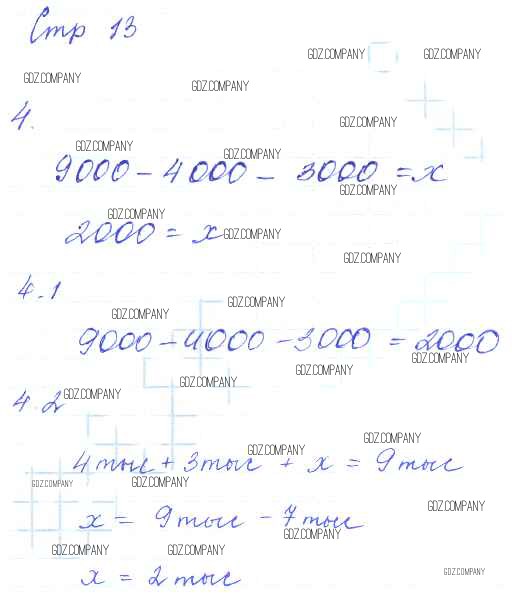 Стр 13
GDZ.COMPANY GDZ.COMPANY
GDZ.COMPANY GDZ.COMPANY
4.
GDZ.COMPANY
GDZ.COMPANY GDZ.COMPANY
9000 - 4000 - 3000 = x
GDZ.COMPANY
GDZ.COMPANY
2000 = x GDZ.COMPANY
GDZ.COMPANY
4.1
GDZ.COMPANY
GDZ.COMPANY
9000 - 4000 - 3000 = 2000
GDZ.COMPANY
GDZ.COMPANY
GDZ.COMPANY
4.2 GDZ.COMPANY
GDZ.COMPANY
GDZ.COMPANY
4 тыс + 3 тыс + x = 9 тыс
GDZ.COMPANY GDZ.COMPANY
GDZ.COMPANY
x = 9 тыс - 7 тыс
GDZ.COMPANY
GDZ.COMPANY GDZ.COMPANY
x = 2 тыс
GDZ.COMPANY